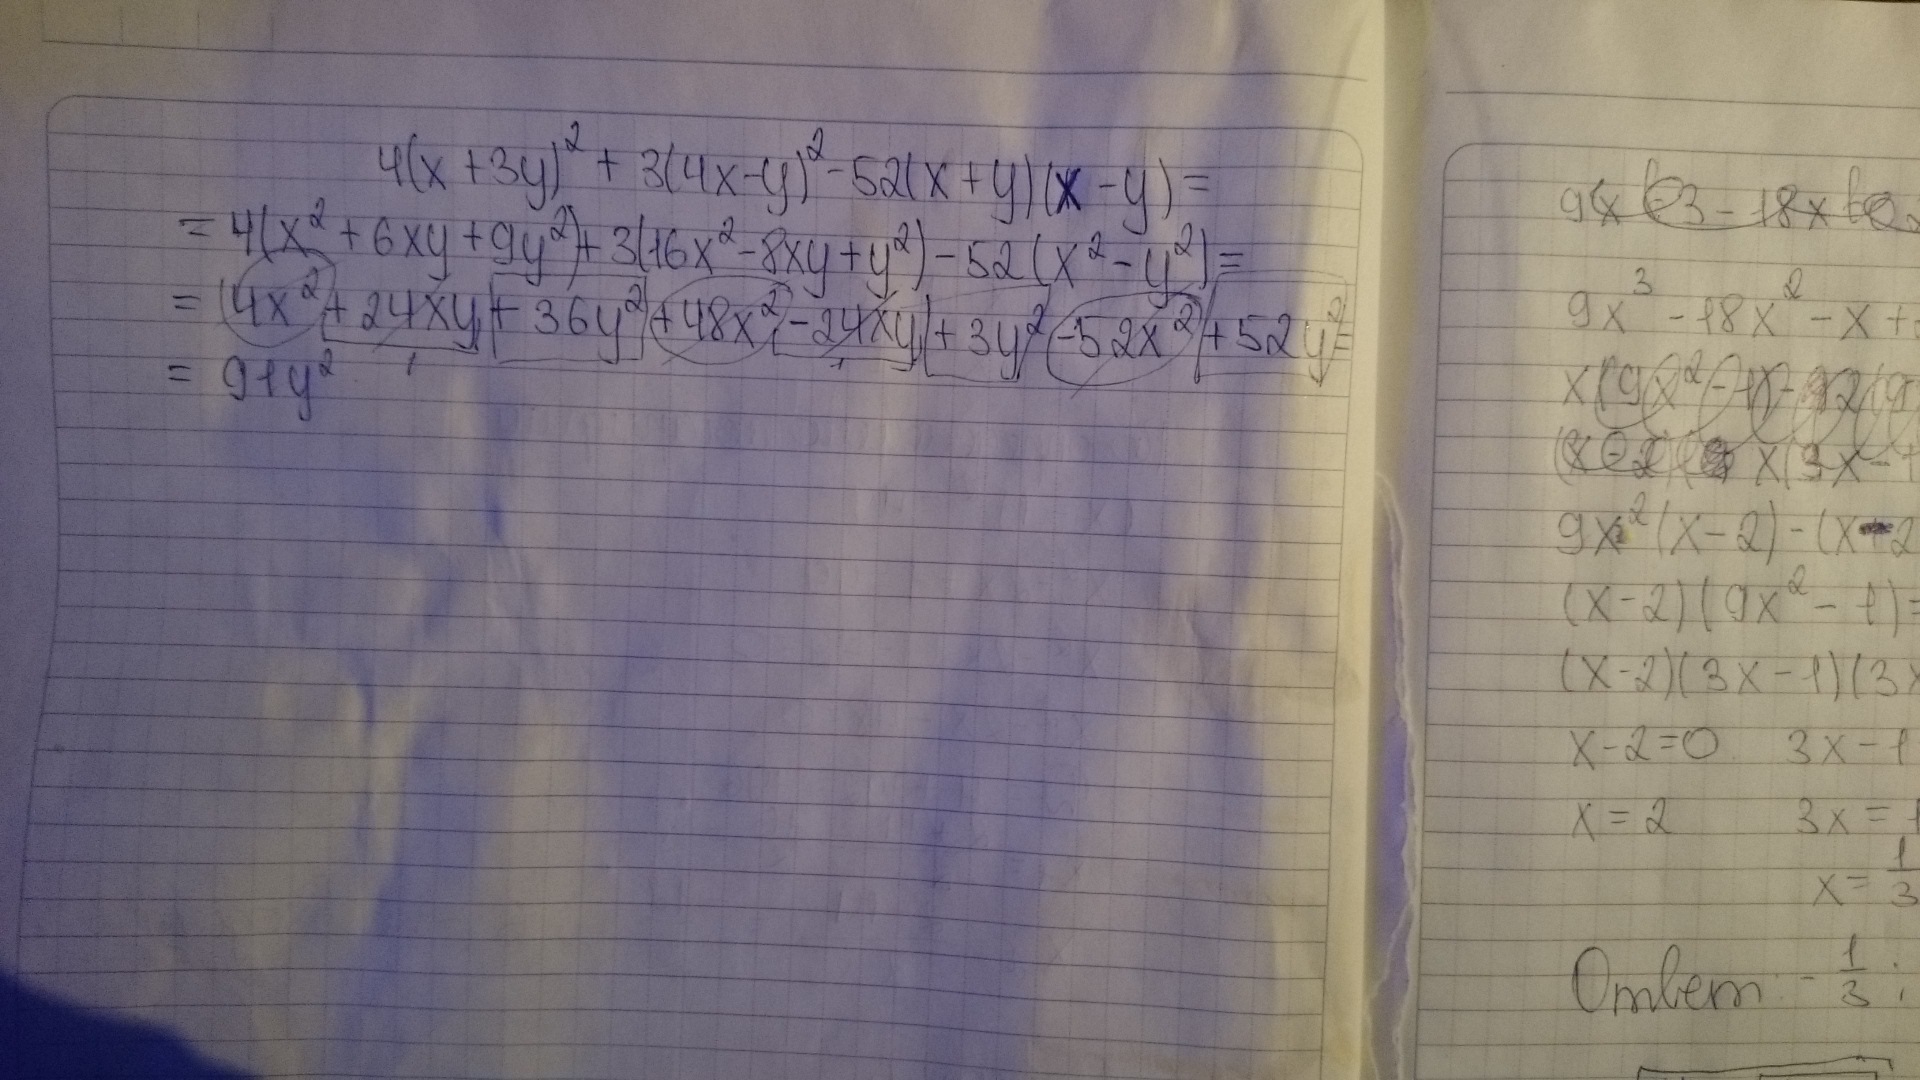 4(x+3y)²+3(4x-y)²-52(x+y)(x-y)=
=4(x²+6xy+9y²)+3(16x²-8xy+y²)-52(x²-y²)=
=4x²+24xy+36y²+48x²-24xy+3y²-52x²+52y²=
=91y²
9x³-18x²-x+
9x²(x-2)-(x-2
(x-2)(9x²-1)=
(x-2)(3x-1)(3x
x-2=0 3x-1
x=2 3x=1
x=1/3
Ответ: -1/3;